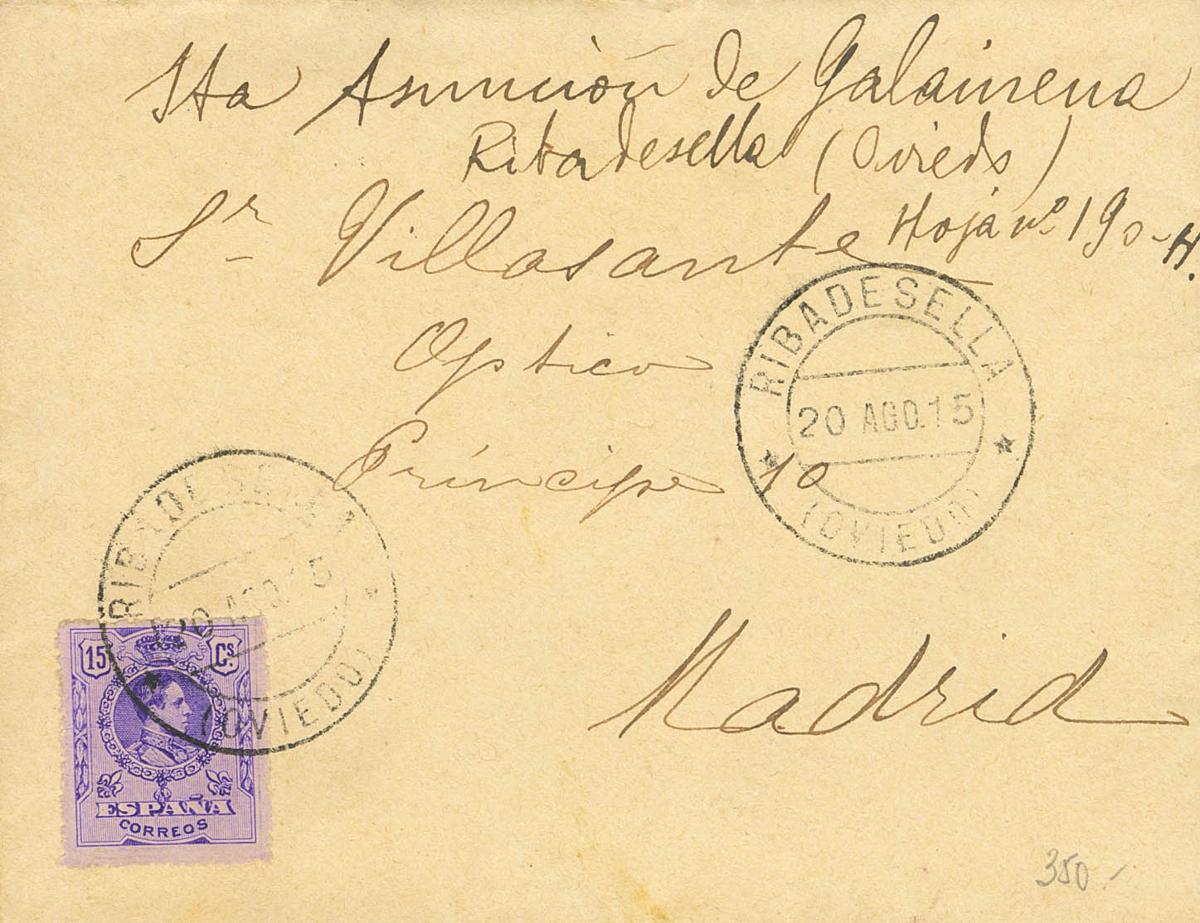 Sta Asunción de Galainena
Ribadesella (Oviedo)
Hoja nº 190-H.
Sr Villasante
Optico
Príncipe 10
Madrid
RIBADESELLA
20 AGO.15
(OVIEDO)
RIBADESELLA
20 AGO.15
(OVIEDO)
15 Cs.
ESPAÑA
CORREOS
350.-